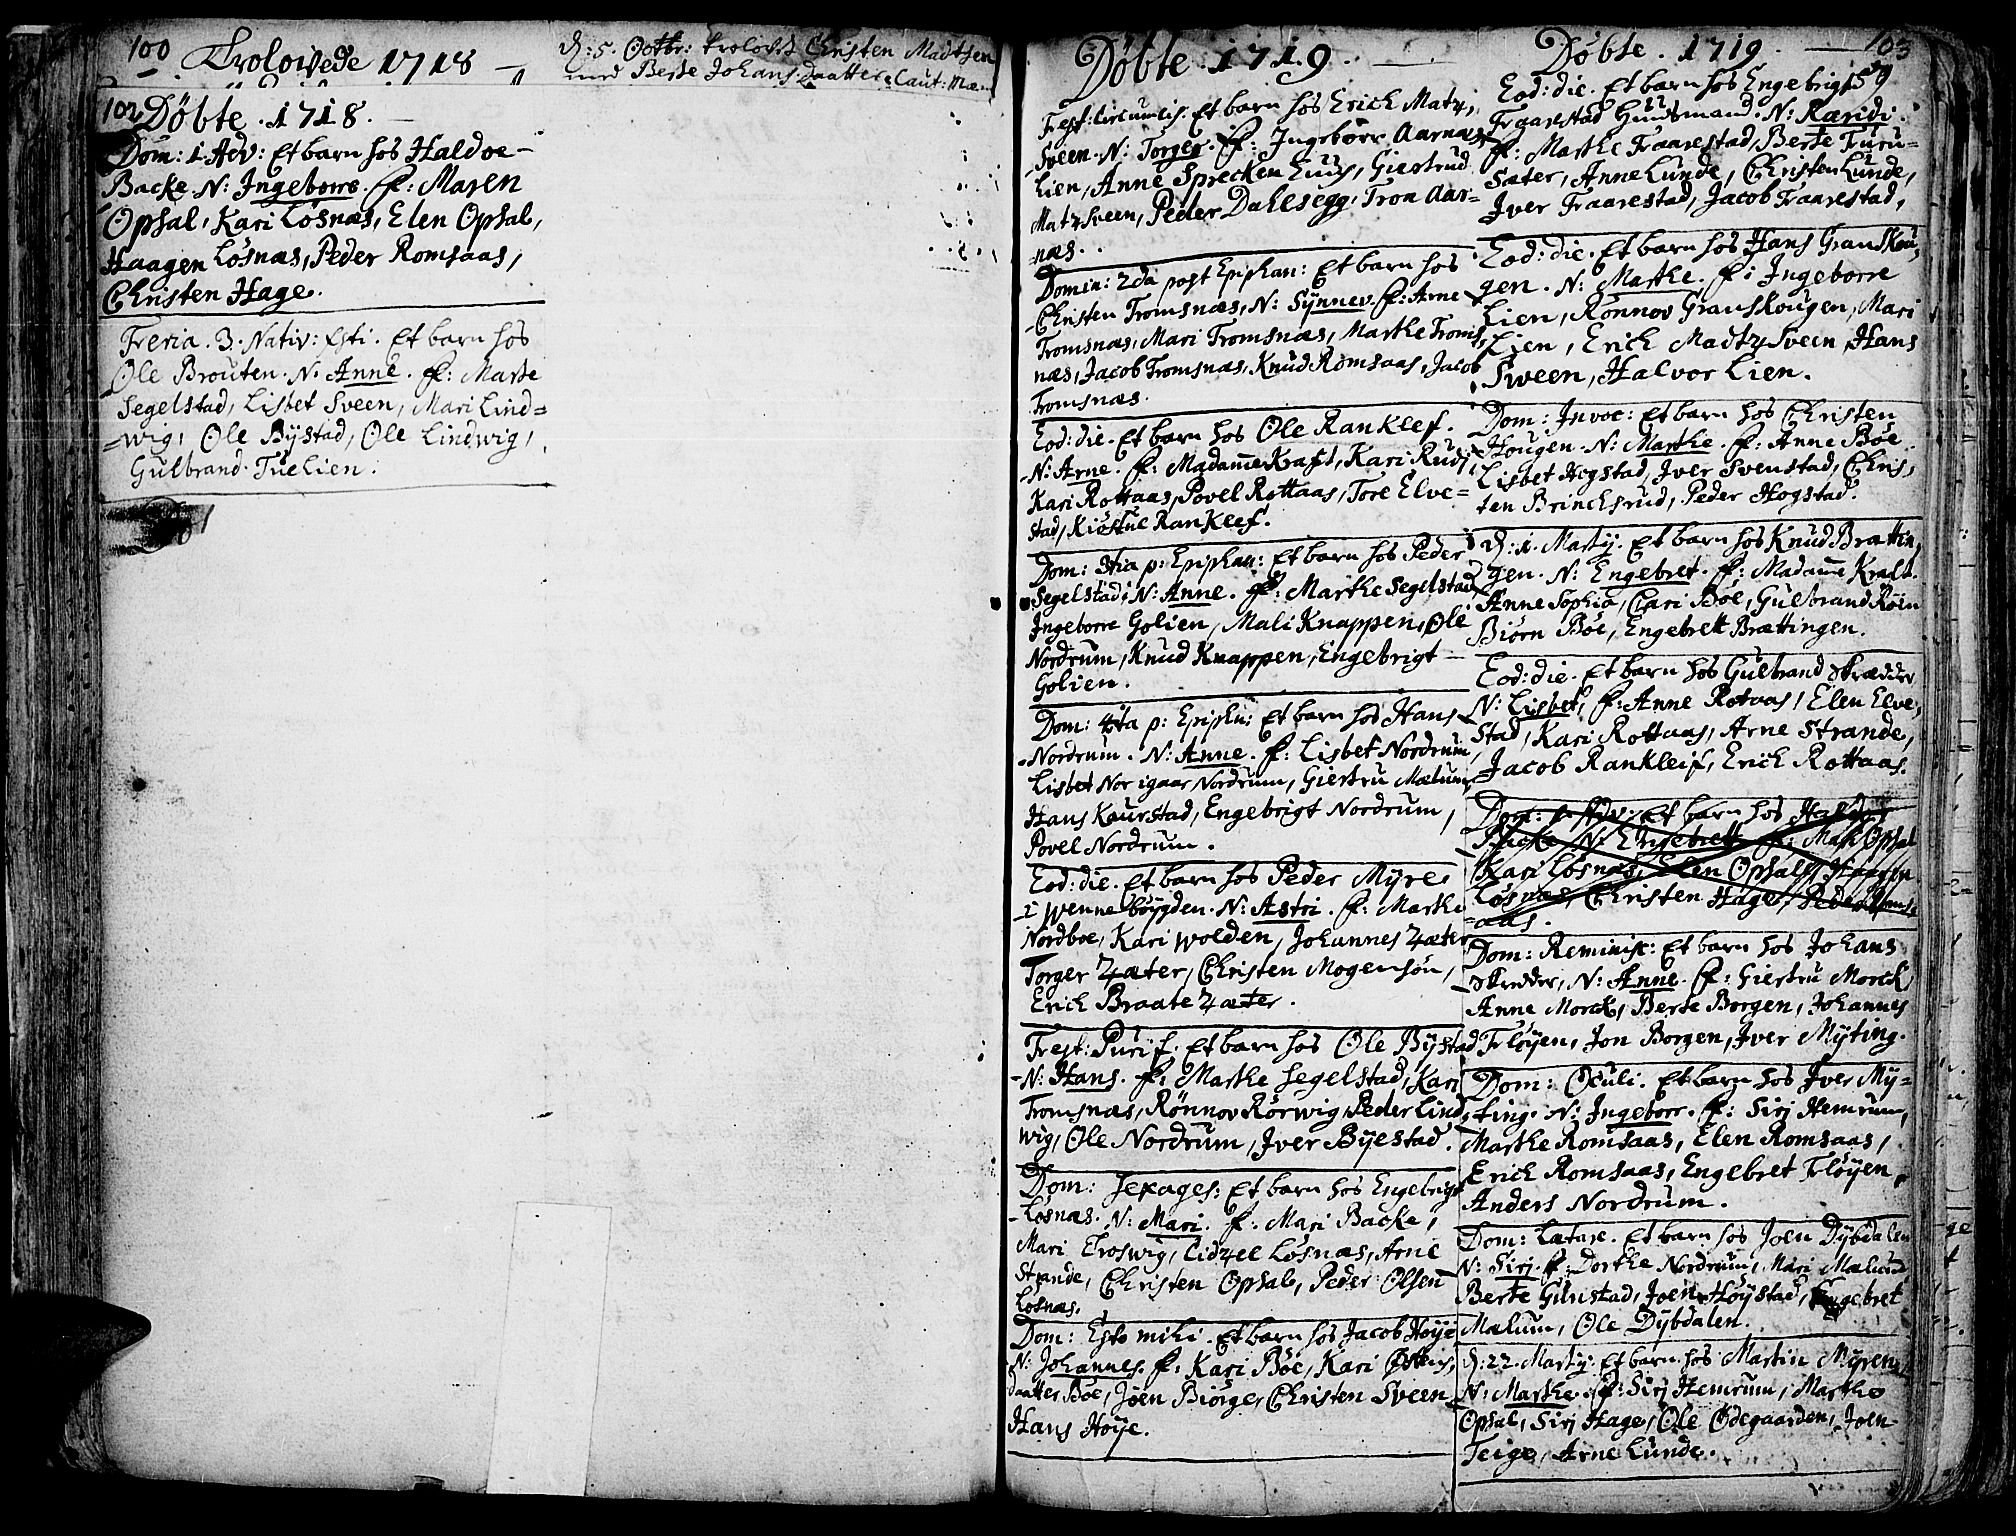 100 Trolovede 1718 —
d: 5. Octbr: trolovet Christen Madtsen
med Berte Johans daatter. Caut:
102 Døbte . 1718. —
Dom: 1. Adv: Et barn hos Haldoe-
Backe. N: Ingeborre. f: Maren
Opsal, Kari Losnæs, Elen Opsal,
Haagen Losnæs, Peder Romsaas,
Christen Hage.
Feria. 3. Nativ: Xsti. Et barn hos
Ole Brouten. N: Anne. f: Marte
Segelstad, Lisbet Sveen, Mari Lind=
=wig, Ole Bÿstad, Ole Lindwig,
Gulbrand Tuelien.
Døbte . 1719. —
Fest: Circumcis. Et barn hos Erich Matz,
Sveen. N: Torger. f: Ingeborr Aarnæs
Lien, Anne Sprecken Huus, Giertrud
Matz Sveen, Peder Dahlsegg, Tron Aar=
næs.
Domin: 2da post Epiphan: Et barn hos
Christen Tromsnæs, N: Sÿnnev. f: Arne
Tromsnæs, Mari Tromsnæs, Marthe Troms,
næs, Jacob Tromsnæs, Knud Romsaas, Jacob
Tromsnæs.
Eod: die. Et barn hos Ole Ranklef.
N: Arne. f: Madame Kraft, Kari Rudj,
Kari Rottaas, Povel Rottaas, Tore Elve=
stad, Kiøstul Ranklef.
Dom: 3tia p: Epiphan: Et barn hos Peder
Segelstad, N: Anne. f: Marthe Segelstad,
Ingeborre Golien, Mali Knappen, Ole
Nordrum, Knud Knappen, Engebrigt —
Golien.
Dom: 4ta p: Epiphn: Et barn hos Hans
Nordrum. N: Anne. f: Lisbet Nordrum,
Lisbet Nor igaar Nordrum, Giertru Mælum,
Hans Kaurstad, Engebrigt Nordrum,
Povel Nordrum.
Eod: die. Et barn hos Peder Mÿre,
i Wennebøygden. N: Astri. f: Marthe
Nordboe, Kari Wolden, Johannes Zæter
Torger Zæter, Christen Mogensøn,
Erich Braate Zæter.
Fest: Purif. Et barn hos Ole Bÿstad
N: Hans. f: Marthe Segelstad, Kari
Tromsnæs, Rønnov Rørwig, Peder Lind,
wig, Ole Nordrum, Iver Bÿestad.
Dom: Sexages: Et barn hos Engebrigt
Losnæs. N: Mari. f: Mari Backe,
Mari Troswig, Lidzel Losnæs, Arne
Strande, Christen Opsal, Peder Olsen
Losnæs.
Dom: Esto mihi. Et barn hos Jacob Høÿe
N: Johannes. f: Kari Bøe, Kari Ostens,
daatter Bøe, Joen Biørge, Christen Sveen
Hans Høÿe.
Døbte . 1719. — 103
Eod: die. Et barn hos Engebrigt 59
Fraarestad Huusmand. N: Kæridi.
f: Marthe Fraarestad, Berte Furu=
Sæter, Anne Lunde, Christen Lunde,
Iver Fraarestad, Jacob Fraarestad,
Eod: die. Et barn hos Hans Granskou,
gen. N: Marthe. f: Ingeborre
Lien, Rønnov Granskougen, Mari
Lien, Erich Madtz Sveen, Hans
Sween, Halvor Lien.
Dom: Invoc: Et barn hos Christen
Hougen. N: Marthe. f: Anne Bøe
Lisbet Hogstad, Iver Svenstad, Chris,
ten Brinchsrud, Peder Hogstad.
d: 1. Martÿ. Et barn hos Knud Brættin,
gen. N: Engebret. f: Madame Kraft
Anne Sophia, Cari Bøe, Gulbrand Røin
Biørn Bøe, Engebrett Brættingen.
Eod: die. Et barn hos Gulbrand Skrædder
N: Lisbet, f: Anne Rotvas, Elen Elve,
Stad, Kari Rottaas, Arne Strande,
Jacob Rankleif, Erich Rottaas.
Dom: 1. Adv: Et barn hos Haldoe
Backe N: Engebrett f: Mari Opsal
Kari Losnæs, Elen Opsal, Haagen
Losnæs, Christen Hage, Peder Roms
aas.
Dom: Reminisc: Et barn hos Johans
Skredder, N: Anne. f: Giertru Morck
Anne Morck, Berte Borgen, Johannes
Fløÿen, Jon Borgen, Iver Mÿting.
Dom: Oculi. Et barn hos Iver Mÿ=
ting. N: Ingeborr. f: Sirj Hemrum,
Marthe Romsaas, Elen Romsaas,
Erich Romsaas, Engebret Fløÿen,
Anders Nordrum.
Dom: Lætare. Et barn hos Joen Dÿbdalen
N: Sirj. f: Dorthe Nordrum, Mari Mælum
Berte Gunstad, Joen Høÿstad, Engebret
Mælum, Ole Dÿbdalen.
d: 22. Martÿ: Et barn hos Martin Mÿren,
N: Marthe. f: Sirj Hemrum, Marthe
Opsal, Sirj Hage, Ole Ødegaarden, Joen
Teige, Arne Lunde.